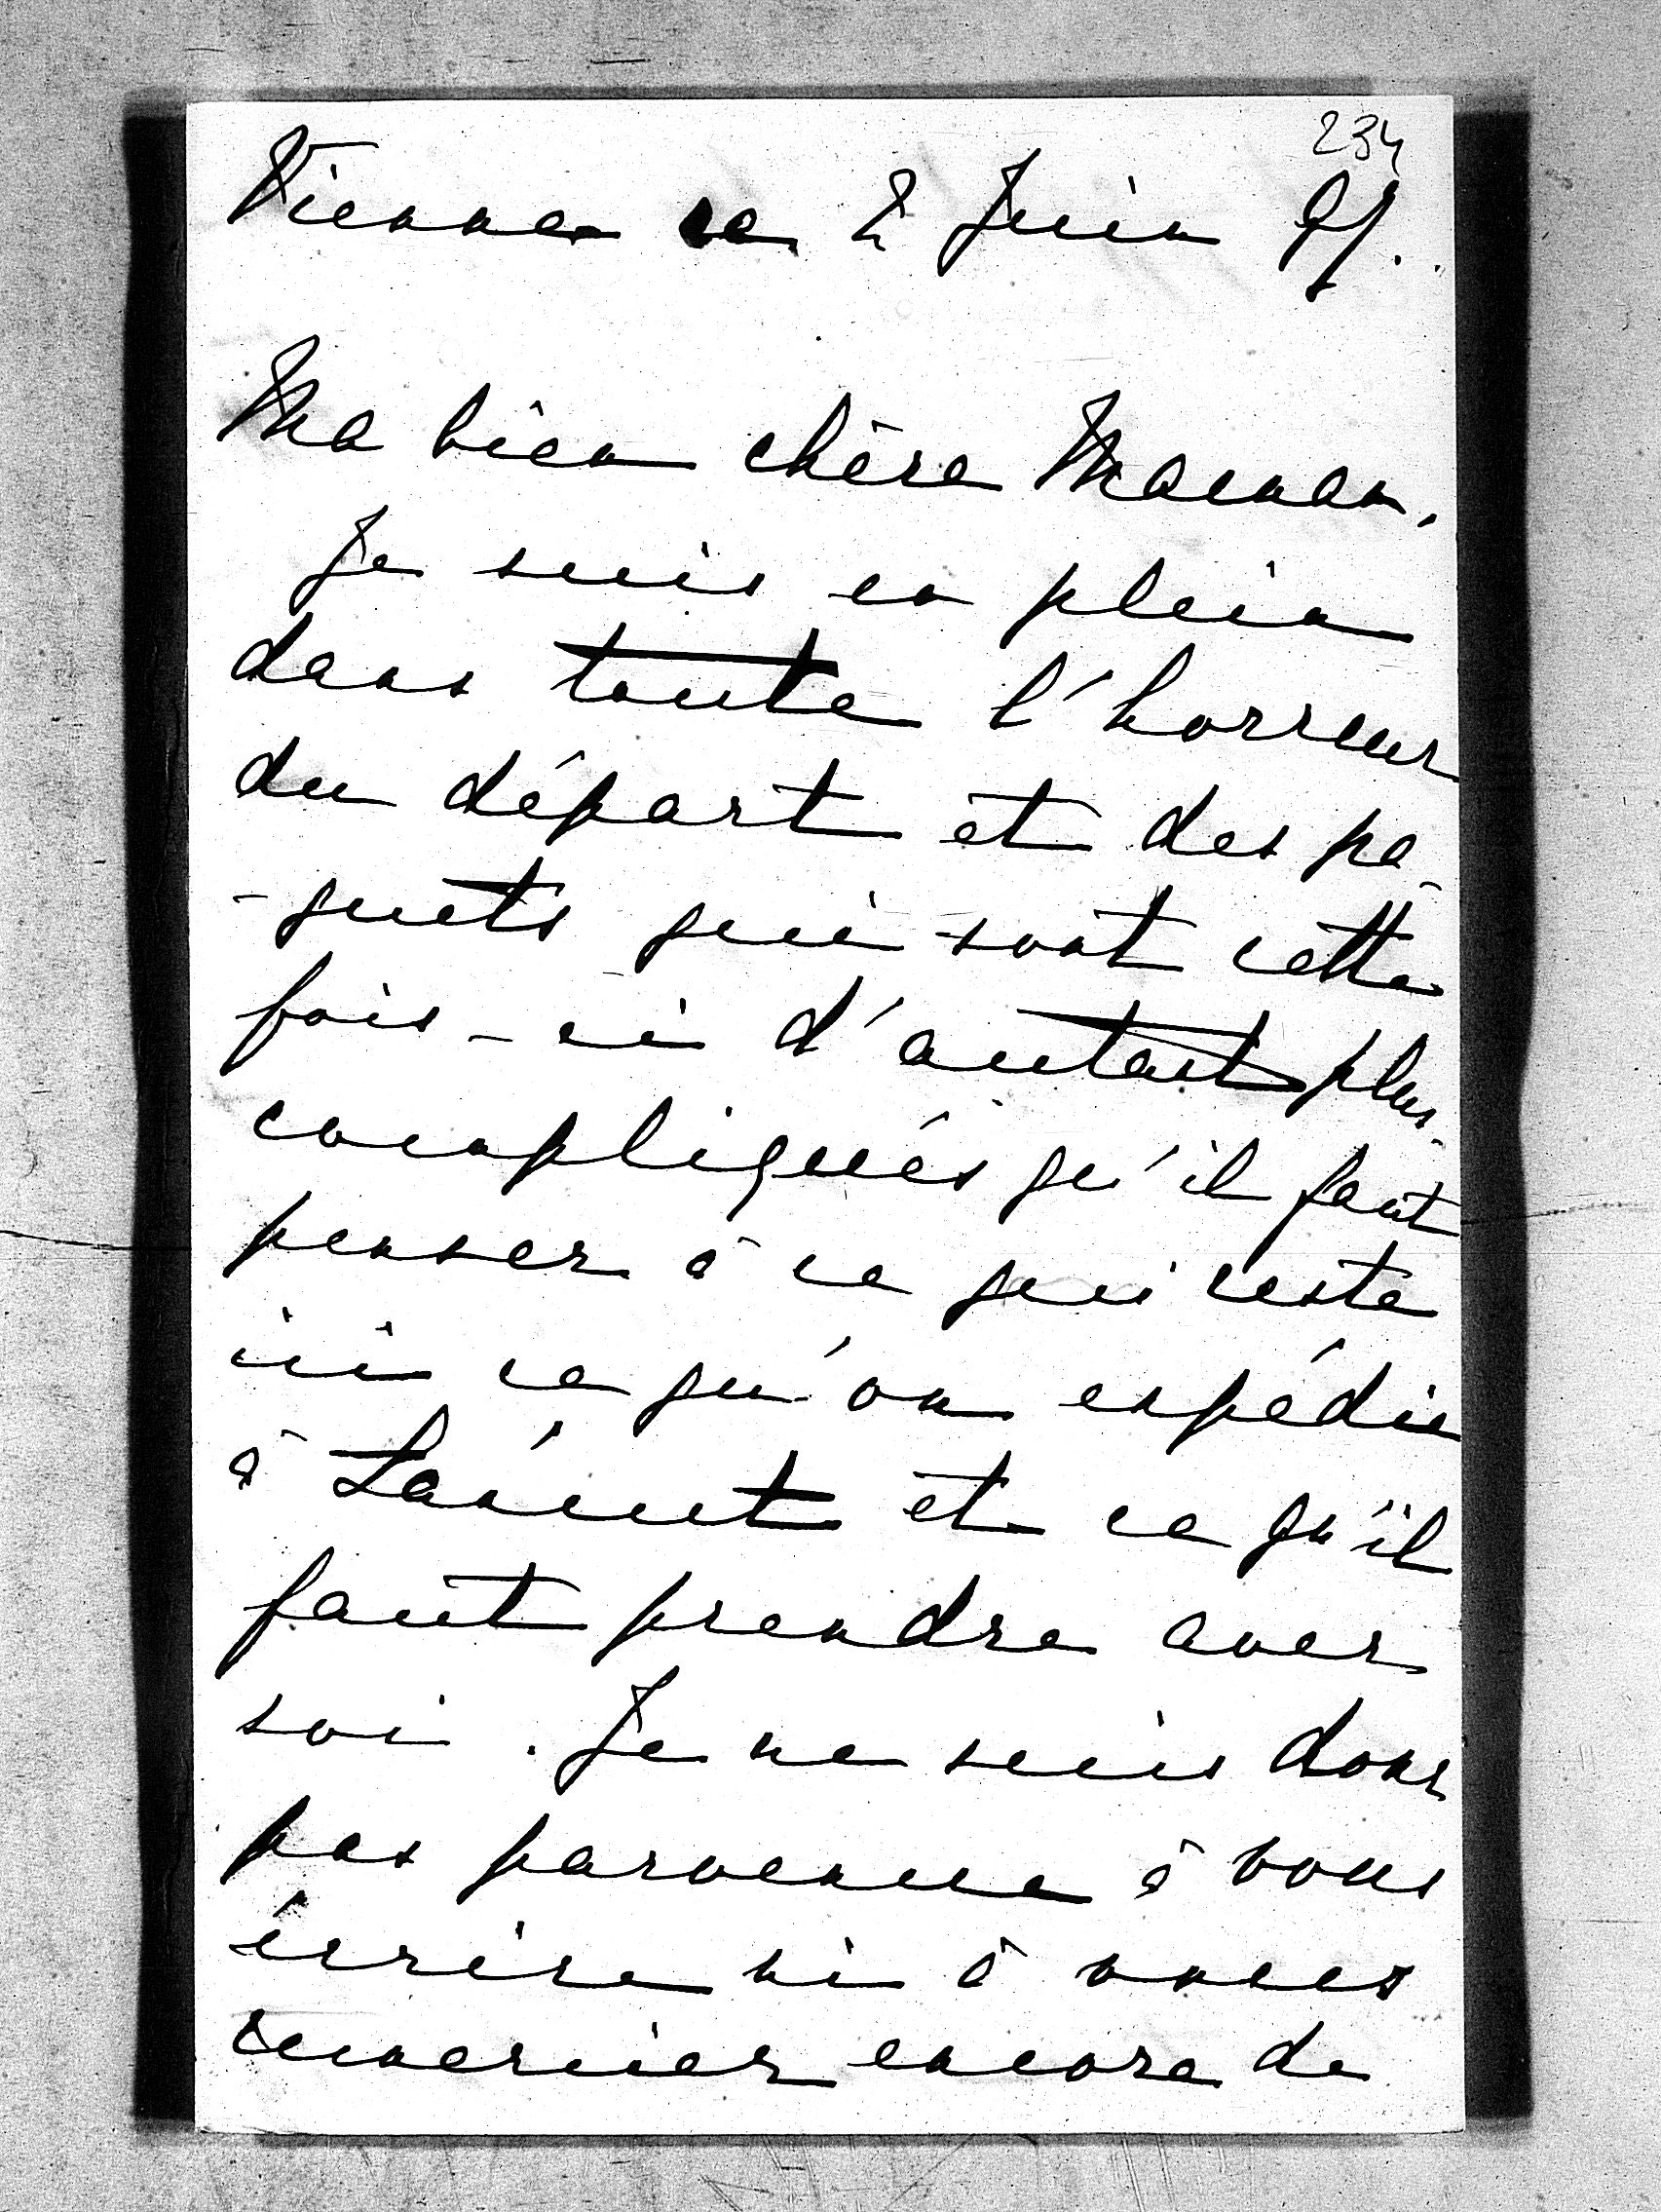 234
Vienne ce 2 Juin 95.
Ma bien chère Maman.
Je suis en plein
dans toute l'horreur
du départ et des pa-
-quets qui sont cette
fois-ci d'autant plus
compliqués qu'il faut
penser à ce qui reste
ici ce qu'on expédie
à Łańcut et ce qu'il
faut prendre avec
soi. Je ne suis donc
pas parvenue à vous
écrire ni à vous
remercier encore de